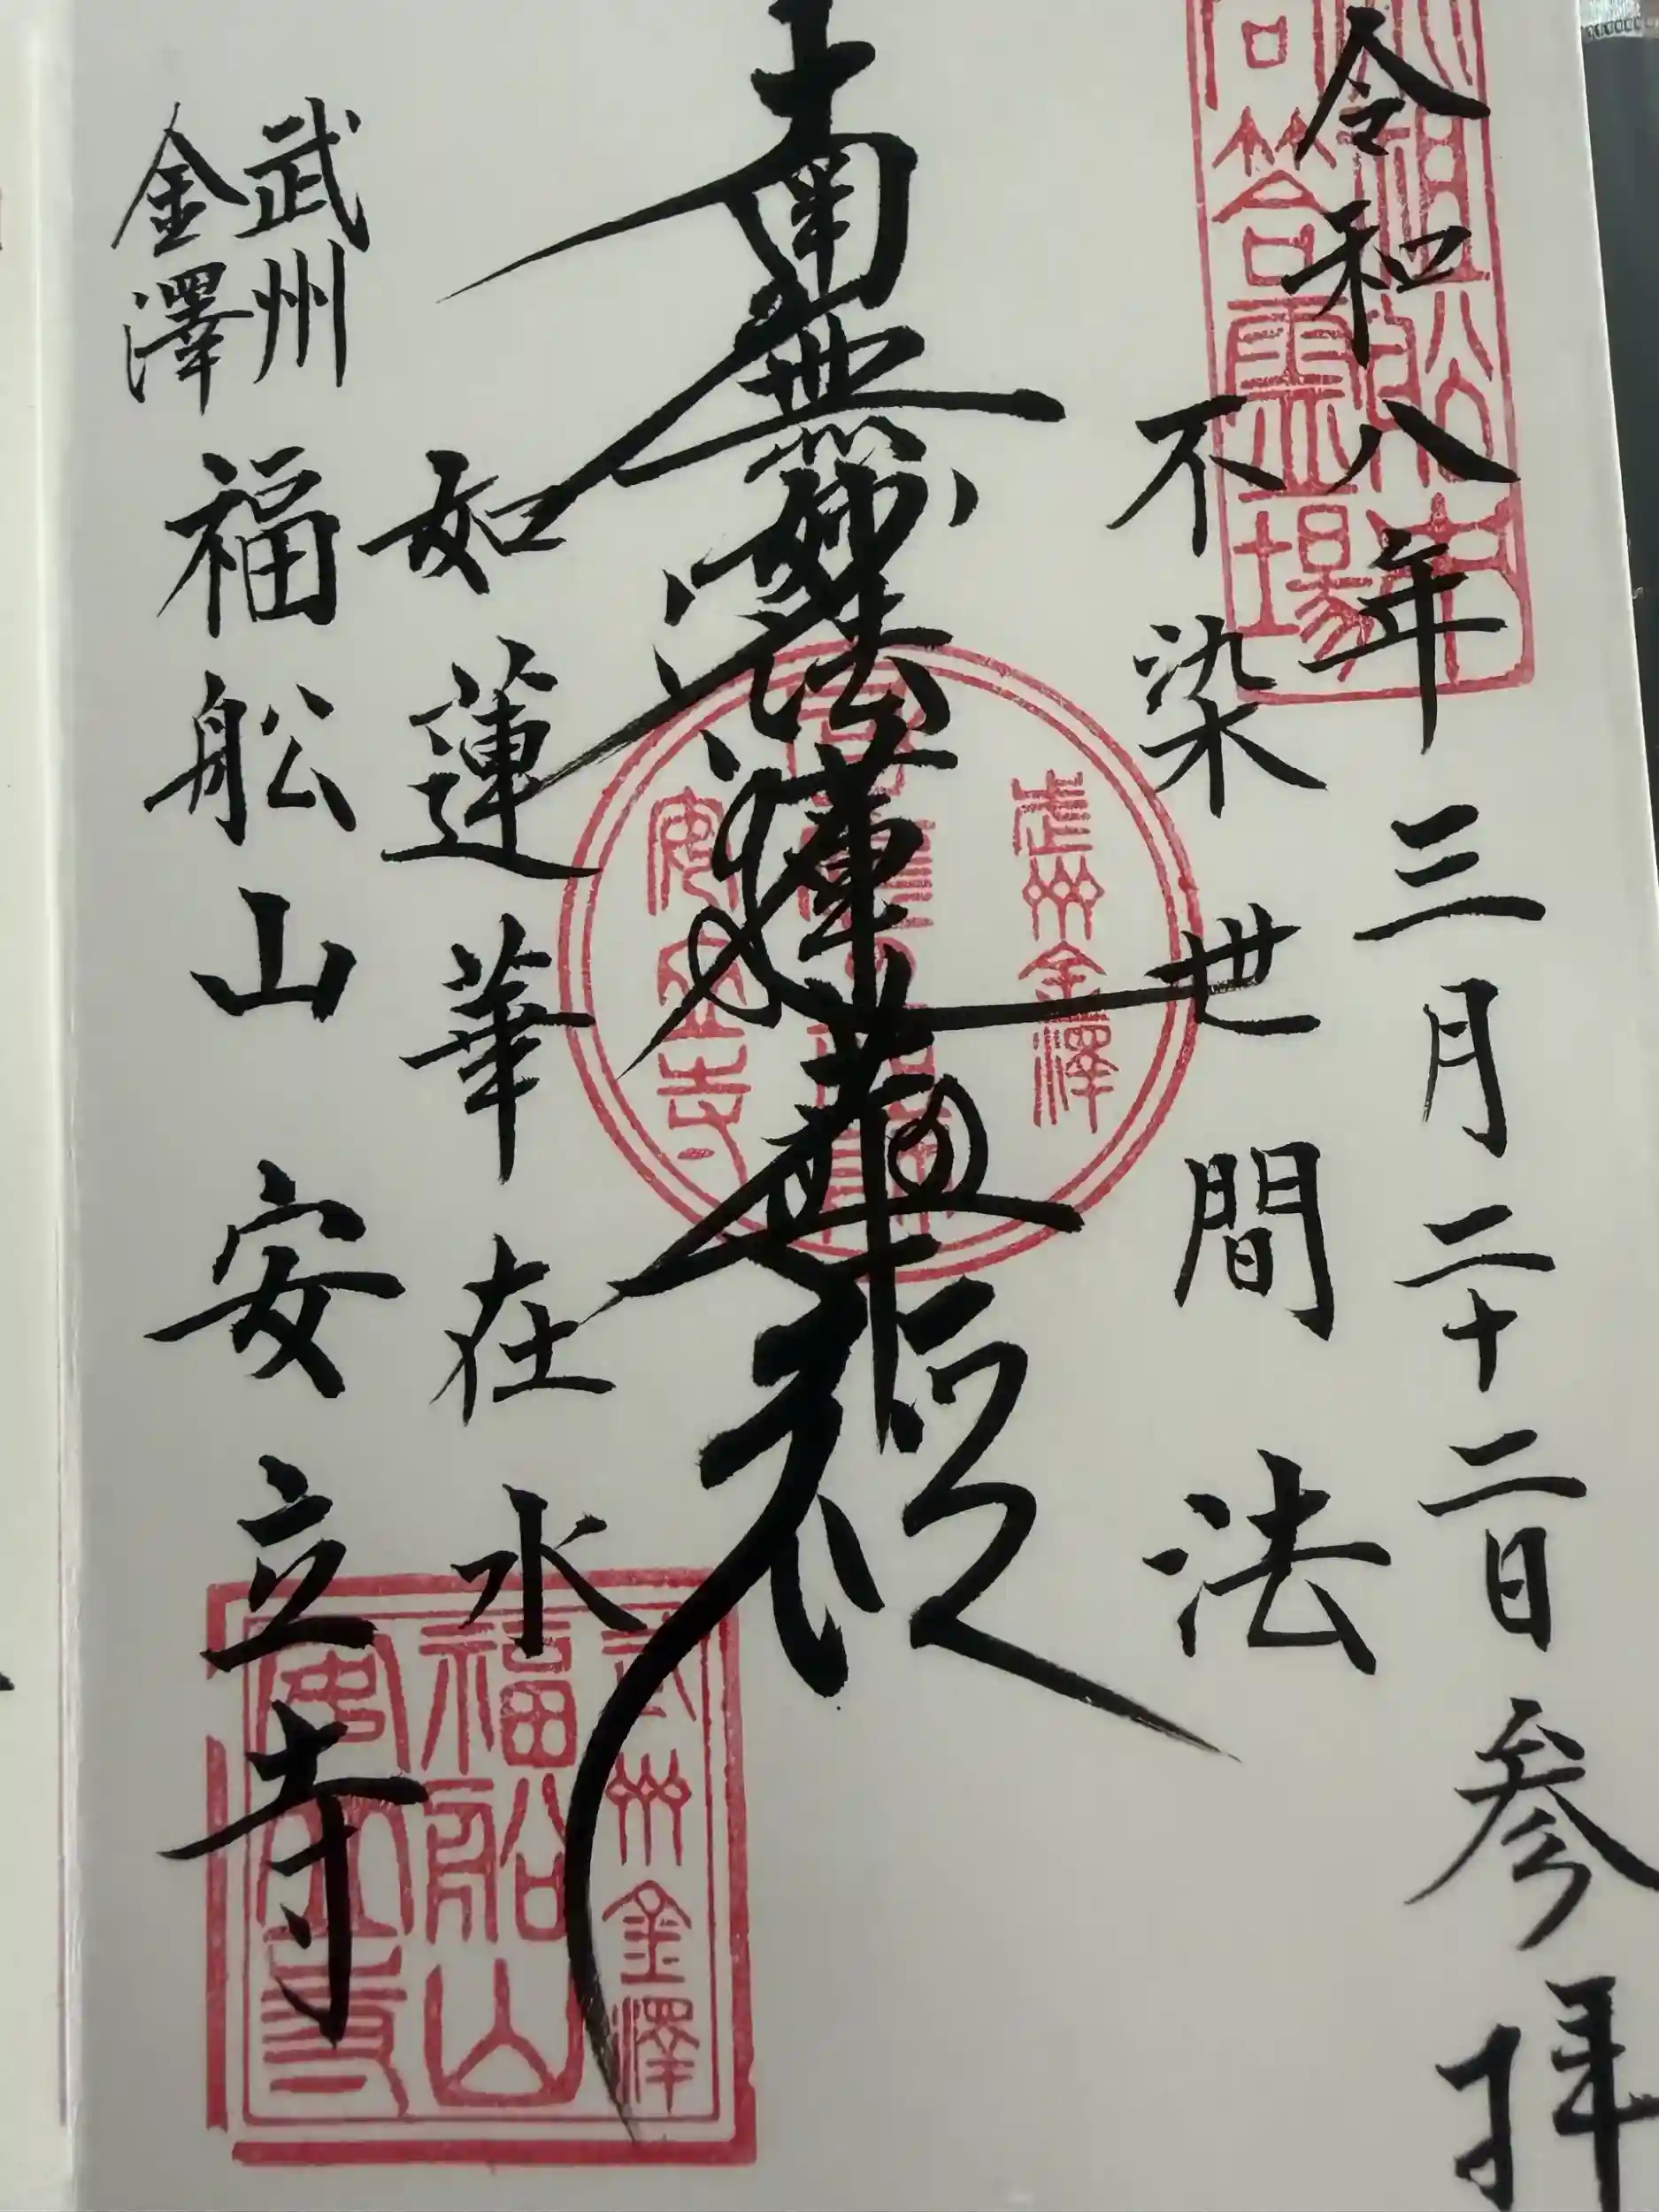 令和八年三月二十二日参拝
不染世間法
南無妙法蓮華経
如蓮華在水
武州
金澤
福舩山安立寺
答霊場
武州金澤
安立寺
武州金澤
福舩山
安立寺